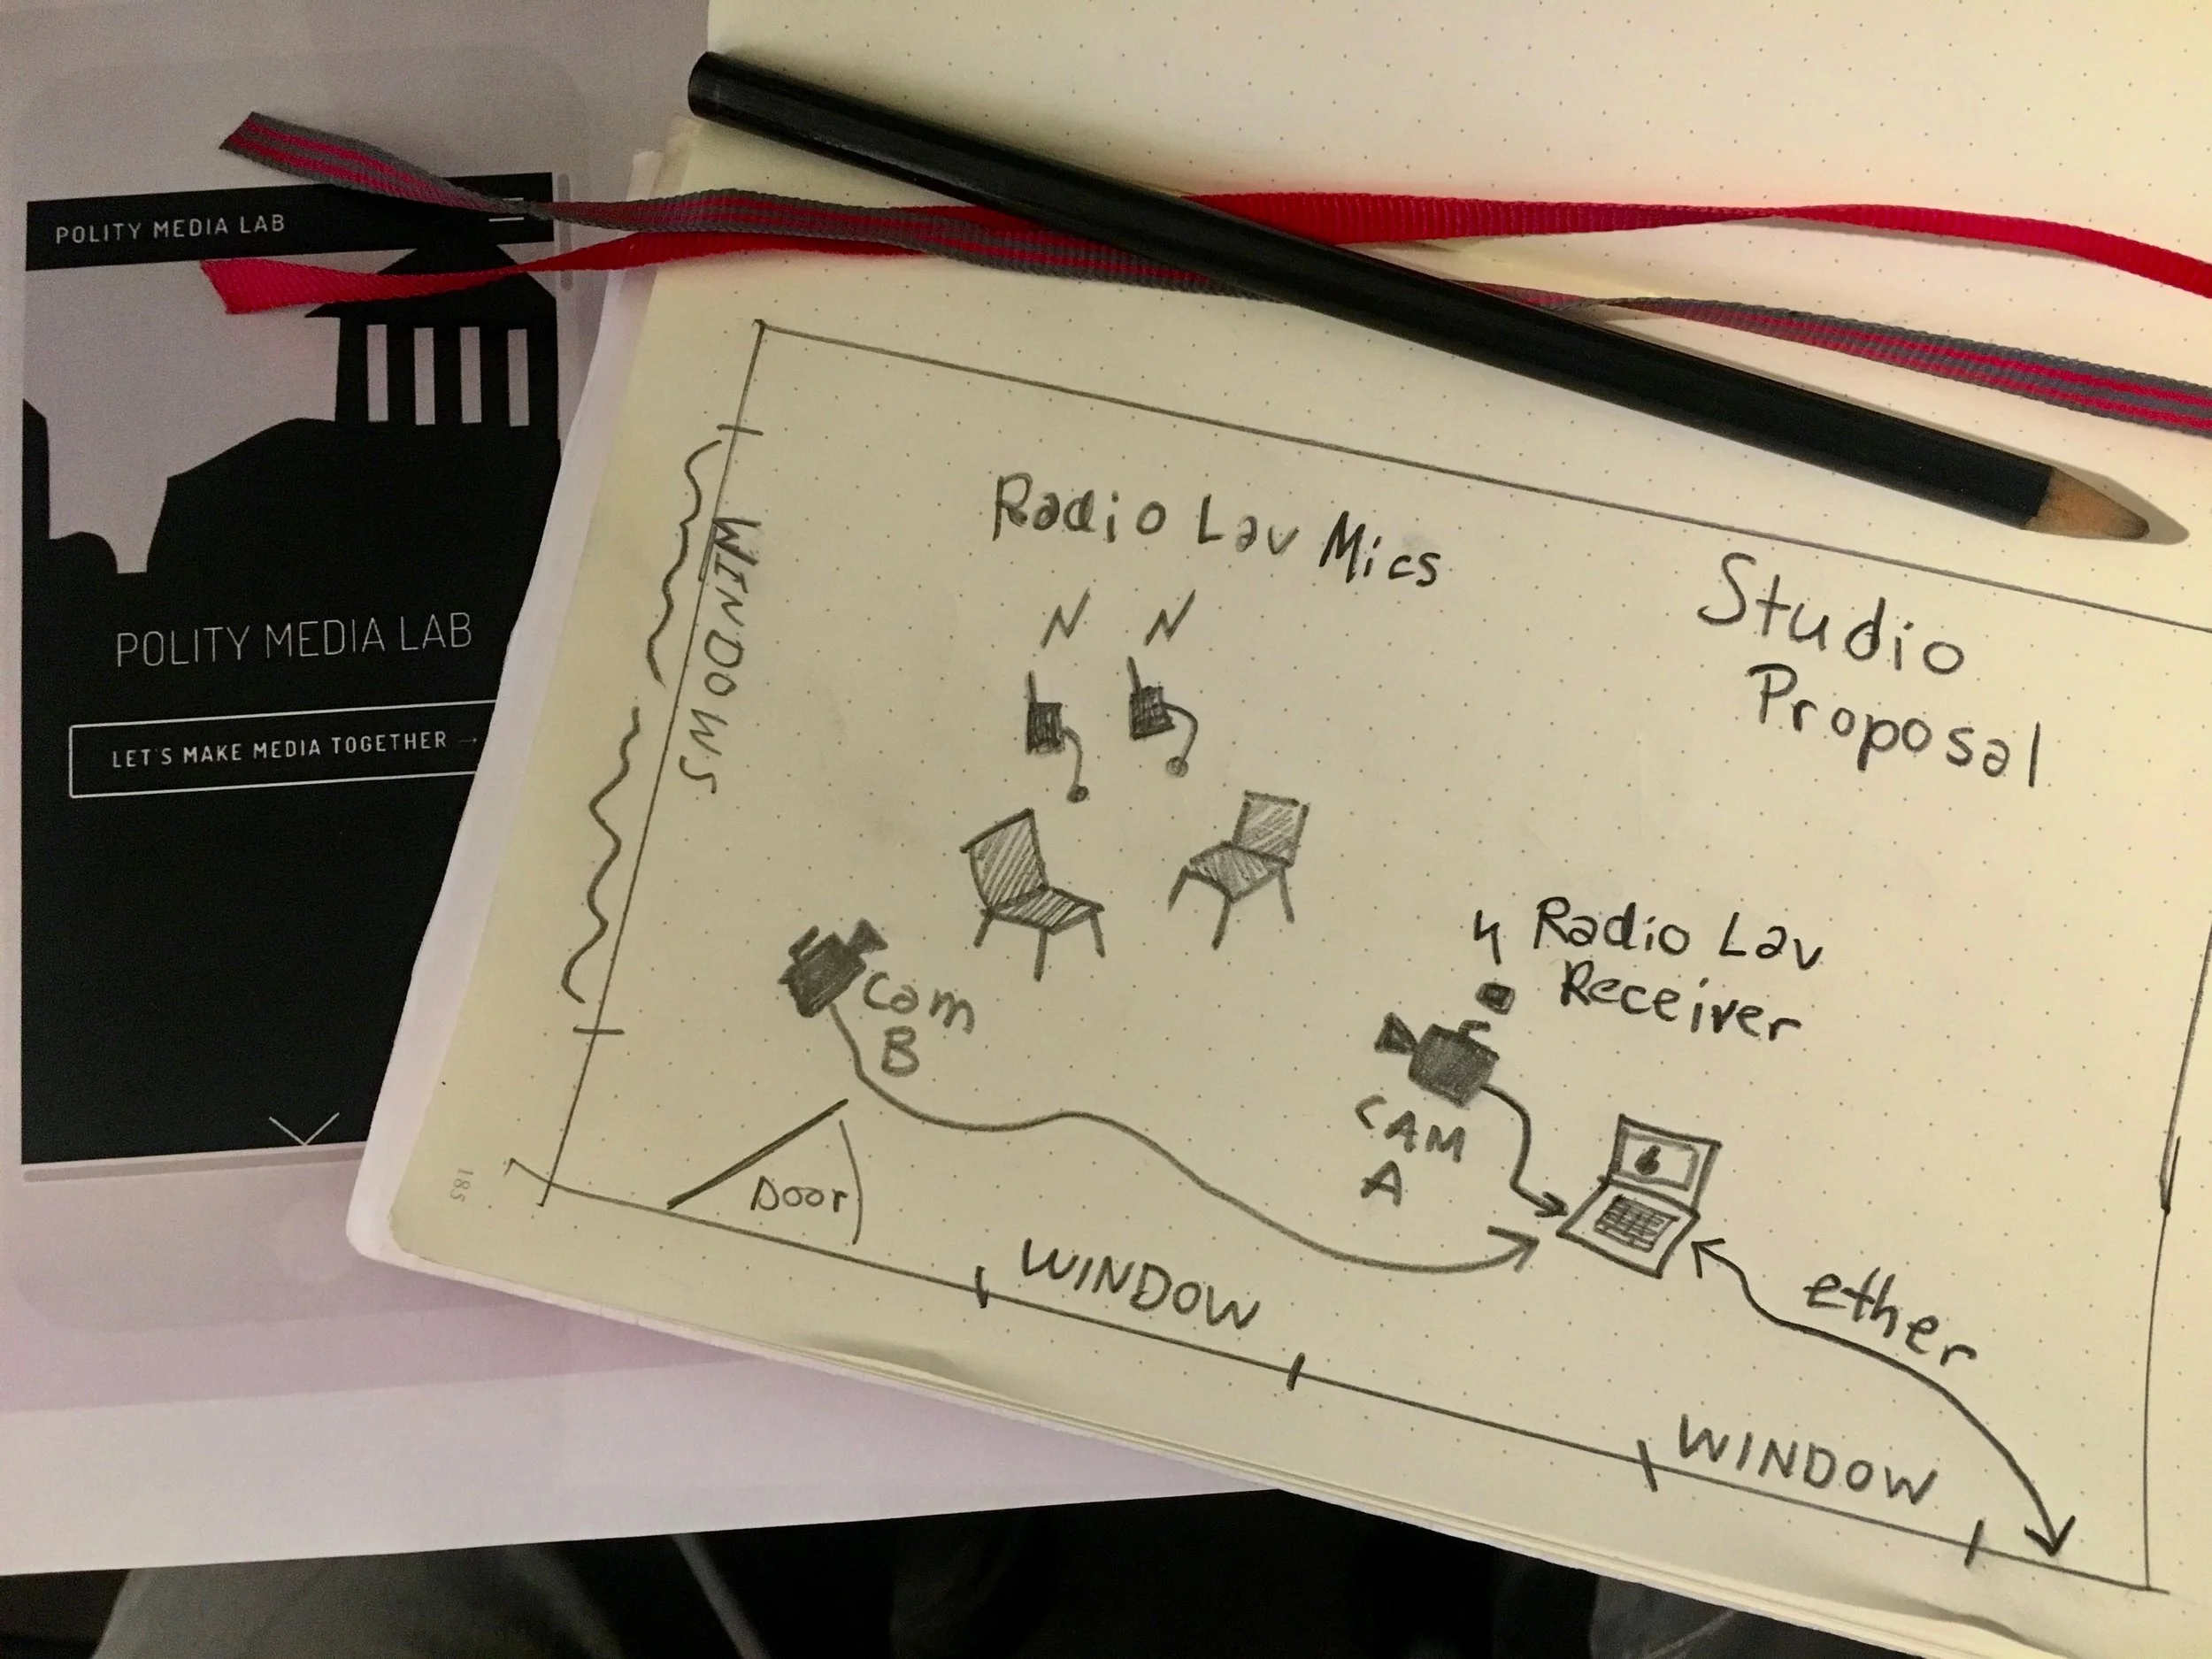 POLITY MEDIA LAB
POLITY MEDIA LAB
LET'S MAKE MEDIA TOGETHER →
Radio Lav Mics
Studio
Proposal
WINDOWS
Radio Lav
Receiver
Cam
B
CAM
A
Door
185
WINDOW
ether
WINDOW